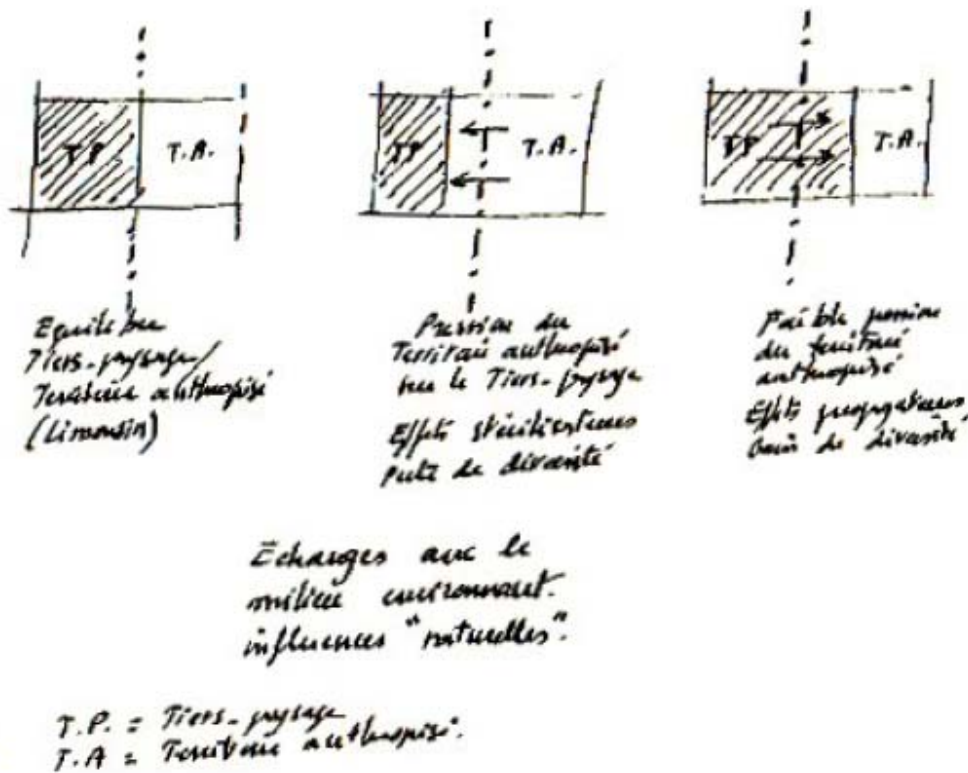 T.P.
T.A.
TP
T.A.
TP
T.A.
Equilibre
Tiers-paysage/
Territoire anthropisé
(Limousin)
Pression du
Territoire anthropisé
sur le Tiers-paysage
Effets stérilisateurs
Perte de diversité
Faible pression
du territoire
anthropisé
Effets propagateurs,
Gain de diversité
Echanges avec le
milieu environnant.
influences "naturelles".
T.P. = Tiers-paysage
T.A = Territoire anthropisé.